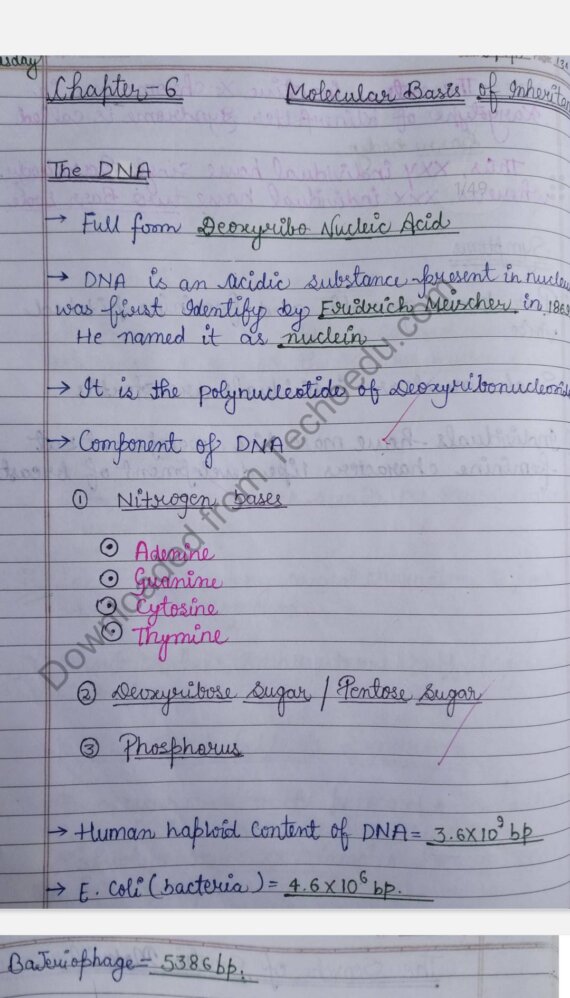 sday
134
Chapter-6 Molecular Basis of Inherita
The DNA
1/49
→ Full form Deoxyribo Nucleic Acid
→ DNA is an acidic substance present in nucleu
was first identify by Fridrich Meischer in 186
He named it as nuclein
→ It is the polynucleotide of Deoxyribonucleotid
→ Component of DNA
① Nitrogen bases
⊙ Adenine
⊙ Guanine
⊙ Cytosine
⊙ Thymine
② Deoxyribose Sugar / Pentose Sugar
③ Phosphorus
→ Human haploid content of DNA = 3.6X10⁹ bp
→ E. Coli (bacteria) = 4.6X10⁶ bp.
Bacteriophage = 5386 bp.
Downloaded from Techoedu.com